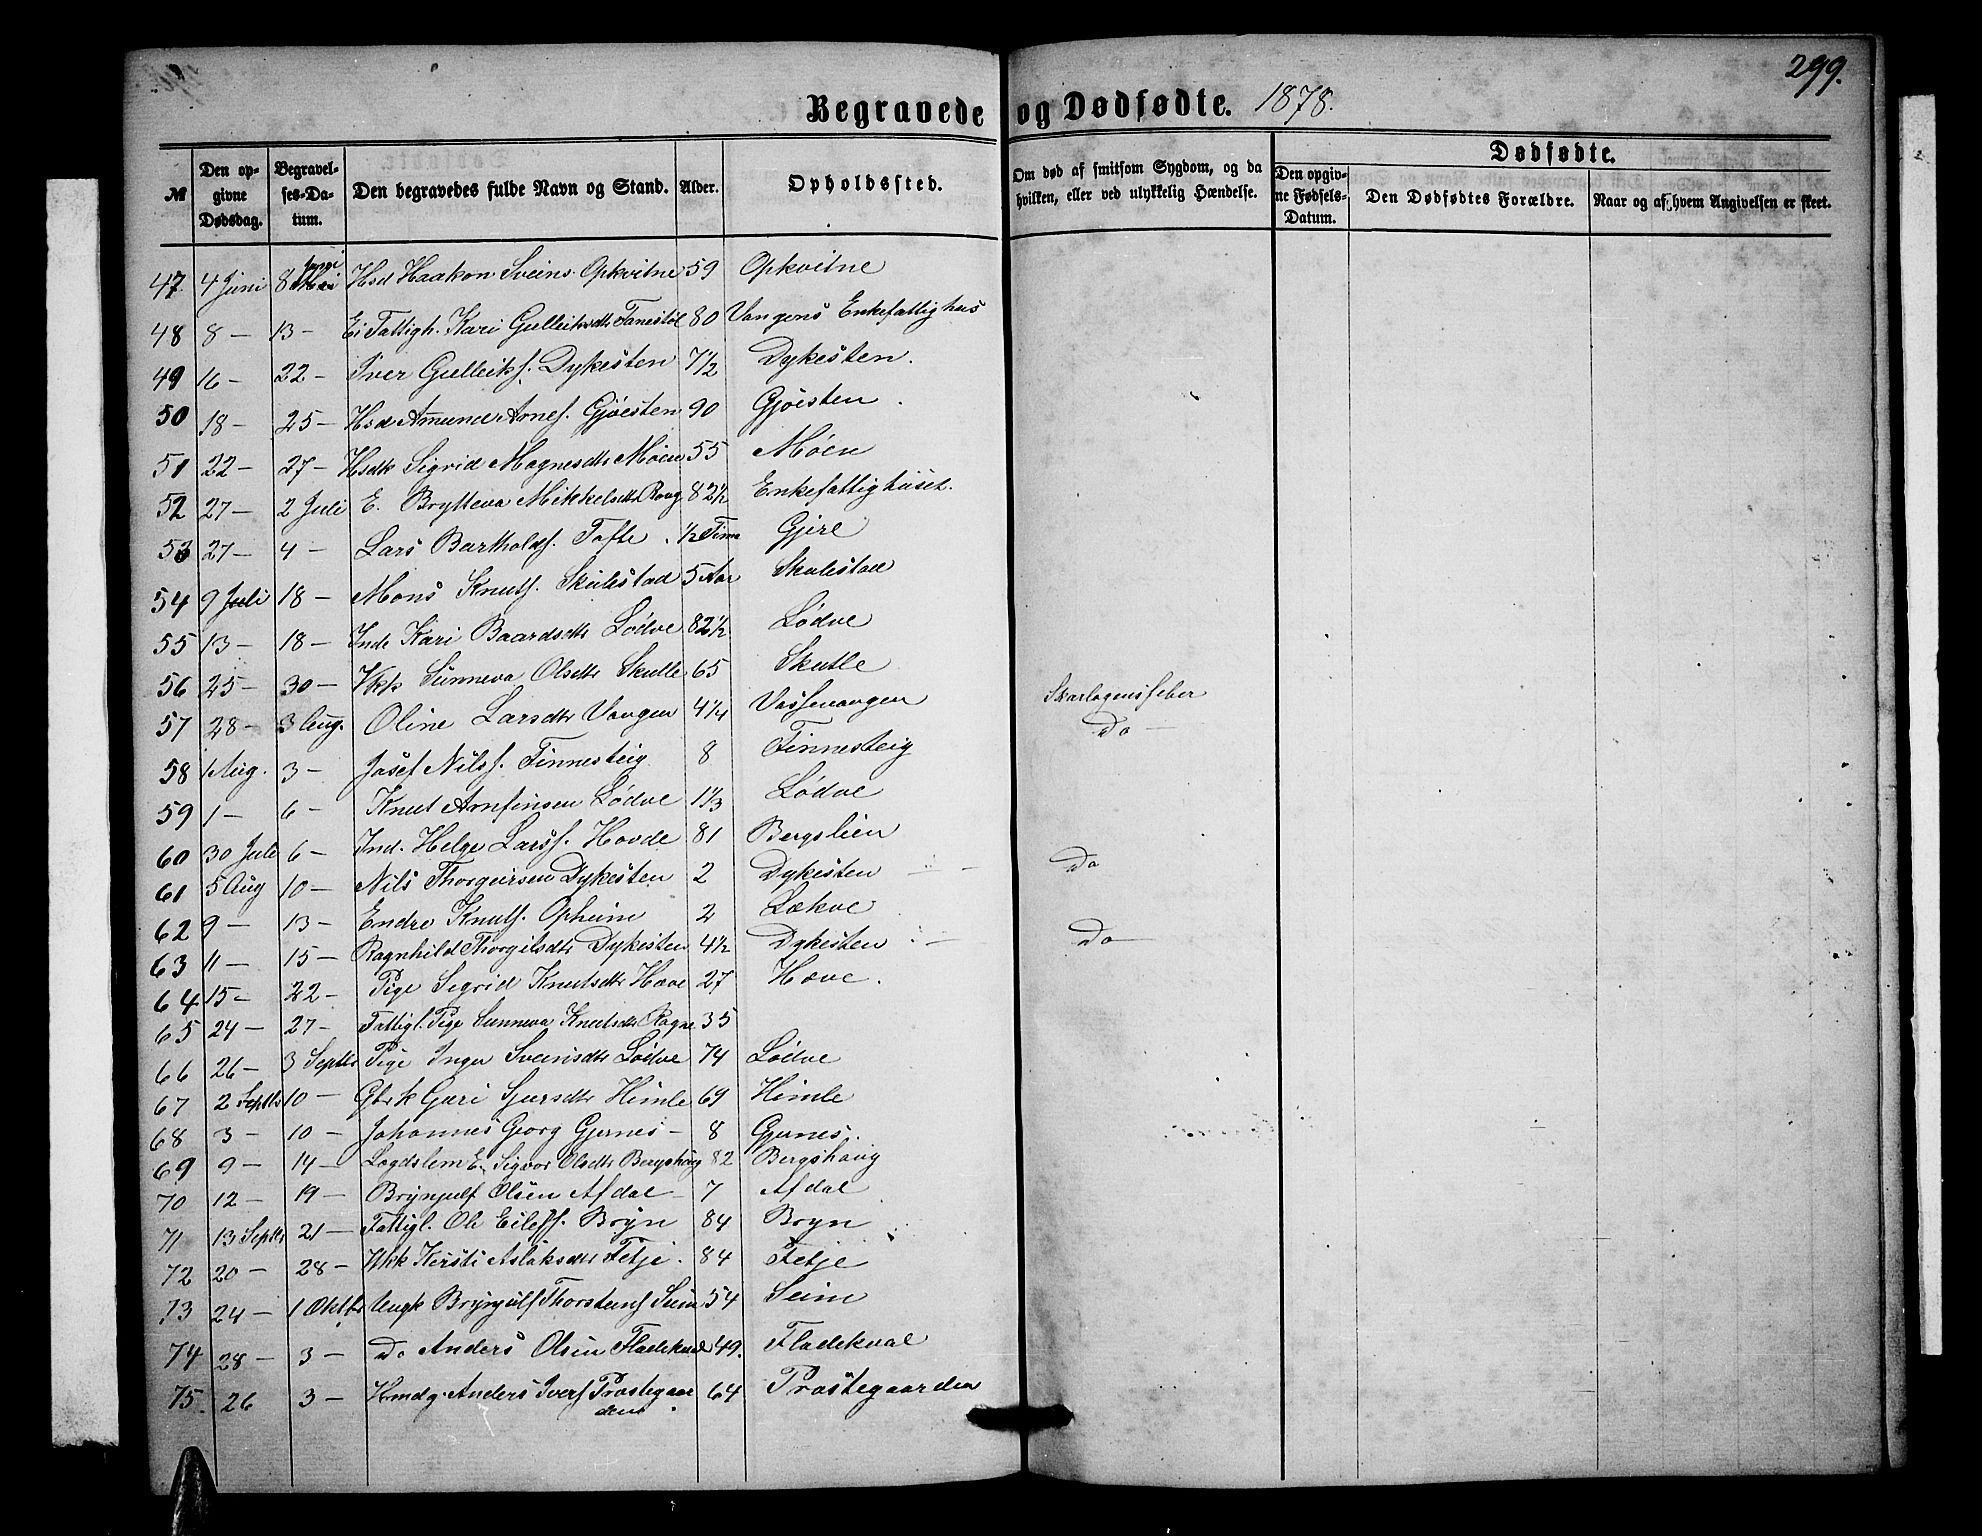 299.
Begravede og Dødfødte. 1878.
№ | Den opgivne Dødsdag. | Begravelses-Datum. | Den begravedes fulde Navn og Stand. | Alder. | Opholdssted. | Om død af smitsom Sygdom, og da hvilken, eller ved ulykkelig Hændelse. | Dødfødte. | Den opgivne Fødsels-Datum. | Den Dødfødtes Forældre. | Naar og af hvem Angivelsen er skeet.
47. 4 Juni 8 Juni Hsd Haakon Sveins. Opkvitne 59 Opkvitne
48 8 – 13 – Ei Fattigh. Kari Gulleiksdtr 80 Vangens Enkefattighus
49 16 – 22 – Iver Gulleiks. Dykesten 7½ Dykesten.
50 18 – 25 – Hsd Amund Arnes. Gjøesten 90 Gjøisten.
51 22 – 27 – Hsdk Sigrid Magnesdtr Møen 55 Møen
52 27 – 2 Juli E. Brytteva Mikkelsdtr 82½ Enkefattighuset.
53 27 – 4 – Lars Bartholds. Tofte. ½ Time Gjere
54 9 Juli 18 – Mons Knuts. Skulestad 5 Aar Skulestad
55 13 – 18 – Inde Kari Baardsdtr Lødve 82½ Lødve
56 25 – 30 – Hkk Sunneva Olsdtr Skutle 65 Skutle
57 28 – 3 Aug. Oline Larsdtr Vangen 4¼ Vossevangen Skarlagensfeber
58 1 Aug. 3 – Josef Nilss. Finnesteig 8 Finnesteig Do –
59 1 – 6 – Knut Arnfinsen Lødve 1⅓ Lødve
60 30 Juli 6 – Ind. Helge Larss. Hovde 81 Bergslien
61 5 Aug 10 – Nils Thorgeirsen Dykesten 2 Dykesten – – Do
62 9 – 13 – Endre Knuts. Opheim 2 Lekve
63 11 – 15 – Ragnhild Thorgilsdtr Dykesten 4½ Dykesten – Do –
64 15 – 22 – Pige Sigrid Knutsdtr Hæve 27 Hæve.
65 24 – 27 – Fattigl. Pige Sunneva Knutsdtr 35
66 26 – 3 Septbr Pige Inger Sveinsdtr Lødve 74 Lødve
67 2 Septbr 10 – Gbrk Guri Sjursdtr Himle 69 Himle
68 3 – 10 – Johannes Georg Gjernes – 8 Gjernes.
69 9 – 14 – Lægdslem E. Sigvor Olsdtr Bergshaug 82 Bergshaug
70 12 – 19 – Brynjulf Olsen Afdal – 7 Afdal
71 13 Septbr 21 – Fattigl. Ole Eilefs. Bryn 84 Bryn
72 20 – 28 – Hkk Kirsti Aslaksdtr Fetje. 84 Fetje
73 24 – 1 Oktbr Ungk Brynjulf Thorstens. Seim 54 Seim
74 28 – 3 – Do Anders Olsen Fladekval 49. Fladekval
75. 26 3 – Hmdg. Anders Ivers. Prostegaarden. 64 Prostegaarden